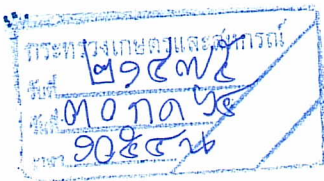 กระทรวงเกษตรและสหกรณ์
๒๑๔๗๕
วันที่ ๓๐ กค ๖๔
เวลา ๑๐๕๔ น